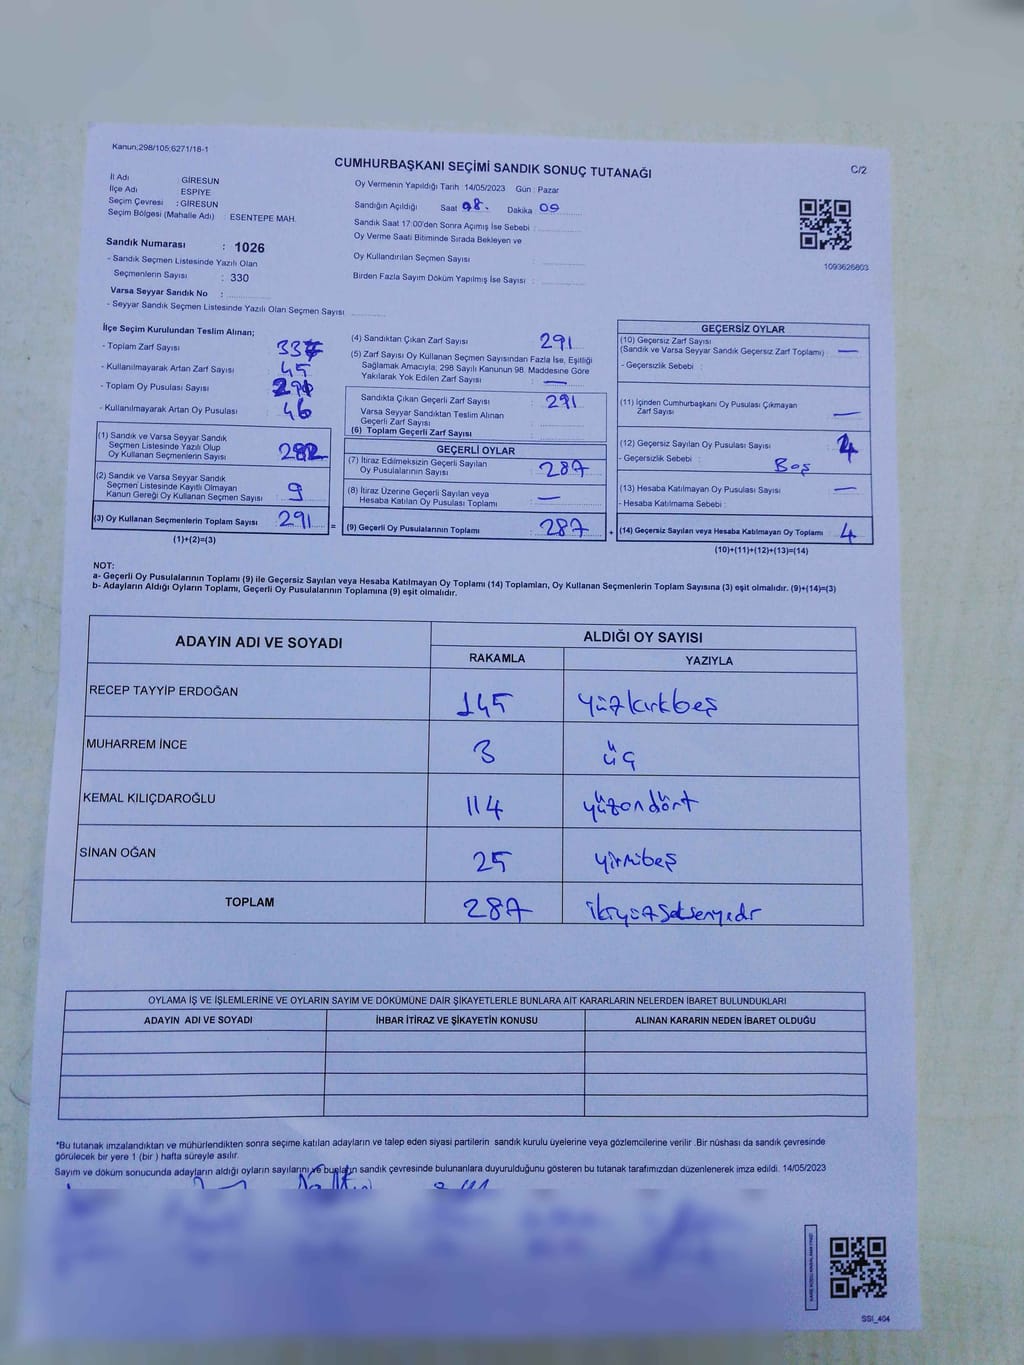 Kanun;298/105;6271/18-1
CUMHURBAŞKANI SEÇİMİ SANDIK SONUÇ TUTANAĞI
C/2
İl Adı : GİRESUN
İlçe Adı : ESPİYE
Seçim Çevresi : GİRESUN
Seçim Bölgesi (Mahalle Adı) : ESENTEPE MAH.
Sandık Numarası : 1026
- Sandık Seçmen Listesinde Yazılı Olan
Seçmenlerin Sayısı : 330
Varsa Seyyar Sandık No :
- Seyyar Sandık Seçmen Listesinde Yazılı Olan Seçmen Sayısı
Oy Vermenin Yapıldığı Tarih : 14/05/2023 Gün : Pazar
Sandığın Açıldığı Saat 08. Dakika 00
Sandık Saat 17:00'den Sonra Açımış İse Sebebi :
Oy Verme Saati Bitiminde Sırada Bekleyen ve
Oy Kullandırılan Seçmen Sayısı :
Birden Fazla Sayım Döküm Yapılmış İse Sayısı :
1093626803
İlçe Seçim Kurulundan Teslim Alınan;
- Toplam Zarf Sayısı :
- Kullanılmayarak Artan Zarf Sayısı : 45
- Toplam Oy Pusulası Sayısı :
- Kullanılmayarak Artan Oy Pusulası : 46
(1) Sandık ve Varsa Seyyar Sandık
Seçmen Listesinde Yazılı Olup
Oy Kullanan Seçmenlerin Sayısı : 282
(2) Sandık ve Varsa Seyyar Sandık
Seçmen Listesinde Kayıtlı Olmayan
Kanun Gereği Oy Kullanan Seçmen Sayısı : 9
(3) Oy Kullanan Seçmenlerin Toplam Sayısı : 291 =
(1)+(2)=(3)
(4) Sandıktan Çıkan Zarf Sayısı : 291
(5) Zarf Sayısı Oy Kullanan Seçmen Sayısından Fazla İse, Eşitliği
Sağlamak Amacıyla; 298 Sayılı Kanunun 98. Maddesine Göre
Yakılarak Yok Edilen Zarf Sayısı : —
Sandıkta Çıkan Geçerli Zarf Sayısı : 291
Varsa Seyyar Sandıktan Teslim Alınan
Geçerli Zarf Sayısı :
(6) Toplam Geçerli Zarf Sayısı :
GEÇERLİ OYLAR
(7) İtiraz Edilmeksizin Geçerli Sayılan
Oy Pusulalarının Sayısı : 287
(8) İtiraz Üzerine Geçerli Sayılan veya
Hesaba Katılan Oy Pusulası Toplamı : —
(9) Geçerli Oy Pusulalarının Toplamı : 287 +
GEÇERSİZ OYLAR
(10) Geçersiz Zarf Sayısı
(Sandık ve Varsa Seyyar Sandık Geçersiz Zarf Toplamı) : —
- Geçersizlik Sebebi :
(11) İçinden Cumhurbaşkanı Oy Pusulası Çıkmayan
Zarf Sayısı : —
(12) Geçersiz Sayılan Oy Pusulası Sayısı : 4
- Geçersizlik Sebebi : Boş
(13) Hesaba Katılmayan Oy Pusulası Sayısı : —
- Hesaba Katılmama Sebebi :
(14) Geçersiz Sayılan veya Hesaba Katılmayan Oy Toplamı : 4
(10)+(11)+(12)+(13)=(14)
NOT:
a- Geçerli Oy Pusulalarının Toplamı (9) ile Geçersiz Sayılan veya Hesaba Katılmayan Oy Toplamı (14) Toplamları, Oy Kullanan Seçmenlerin Toplam Sayısına (3) eşit olmalıdır. (9)+(14)=(3)
b- Adayların Aldığı Oyların Toplamı, Geçerli Oy Pusulalarının Toplamına (9) eşit olmalıdır.
ADAYIN ADI VE SOYADI ALDIĞI OY SAYISI
RAKAMLA YAZIYLA
RECEP TAYYİP ERDOĞAN 145 yüzkırkbeş
MUHARREM İNCE 3 üç
KEMAL KILIÇDAROĞLU 114 yüzondört
SİNAN OĞAN 25 yirmibeş
TOPLAM 287 ikiyüzseksenyedi
OYLAMA İŞ VE İŞLEMLERİNE VE OYLARIN SAYIM VE DÖKÜMÜNE DAİR ŞİKAYETLERLE BUNLARA AİT KARARLARIN NELERDEN İBARET BULUNDUKLARI
ADAYIN ADI VE SOYADI İHBAR İTİRAZ VE ŞİKAYETİN KONUSU ALINAN KARARIN NEDEN İBARET OLDUĞU
*Bu tutanak imzalandıktan ve mühürlendikten sonra seçime katılan adayların ve talep eden siyasi partilerin sandık kurulu üyelerine veya gözlemcilerine verilir .Bir nüshası da sandık çevresinde
görülecek bir yere 1 (bir ) hafta süreyle asılır.
Sayım ve döküm sonucunda adayların aldığı oyların sayılarını ve bunların sandık çevresinde bulunanlara duyurulduğunu gösteren bu tutanak tarafımızdan düzenlenerek imza edildi. 14/05/2023
SSI_404